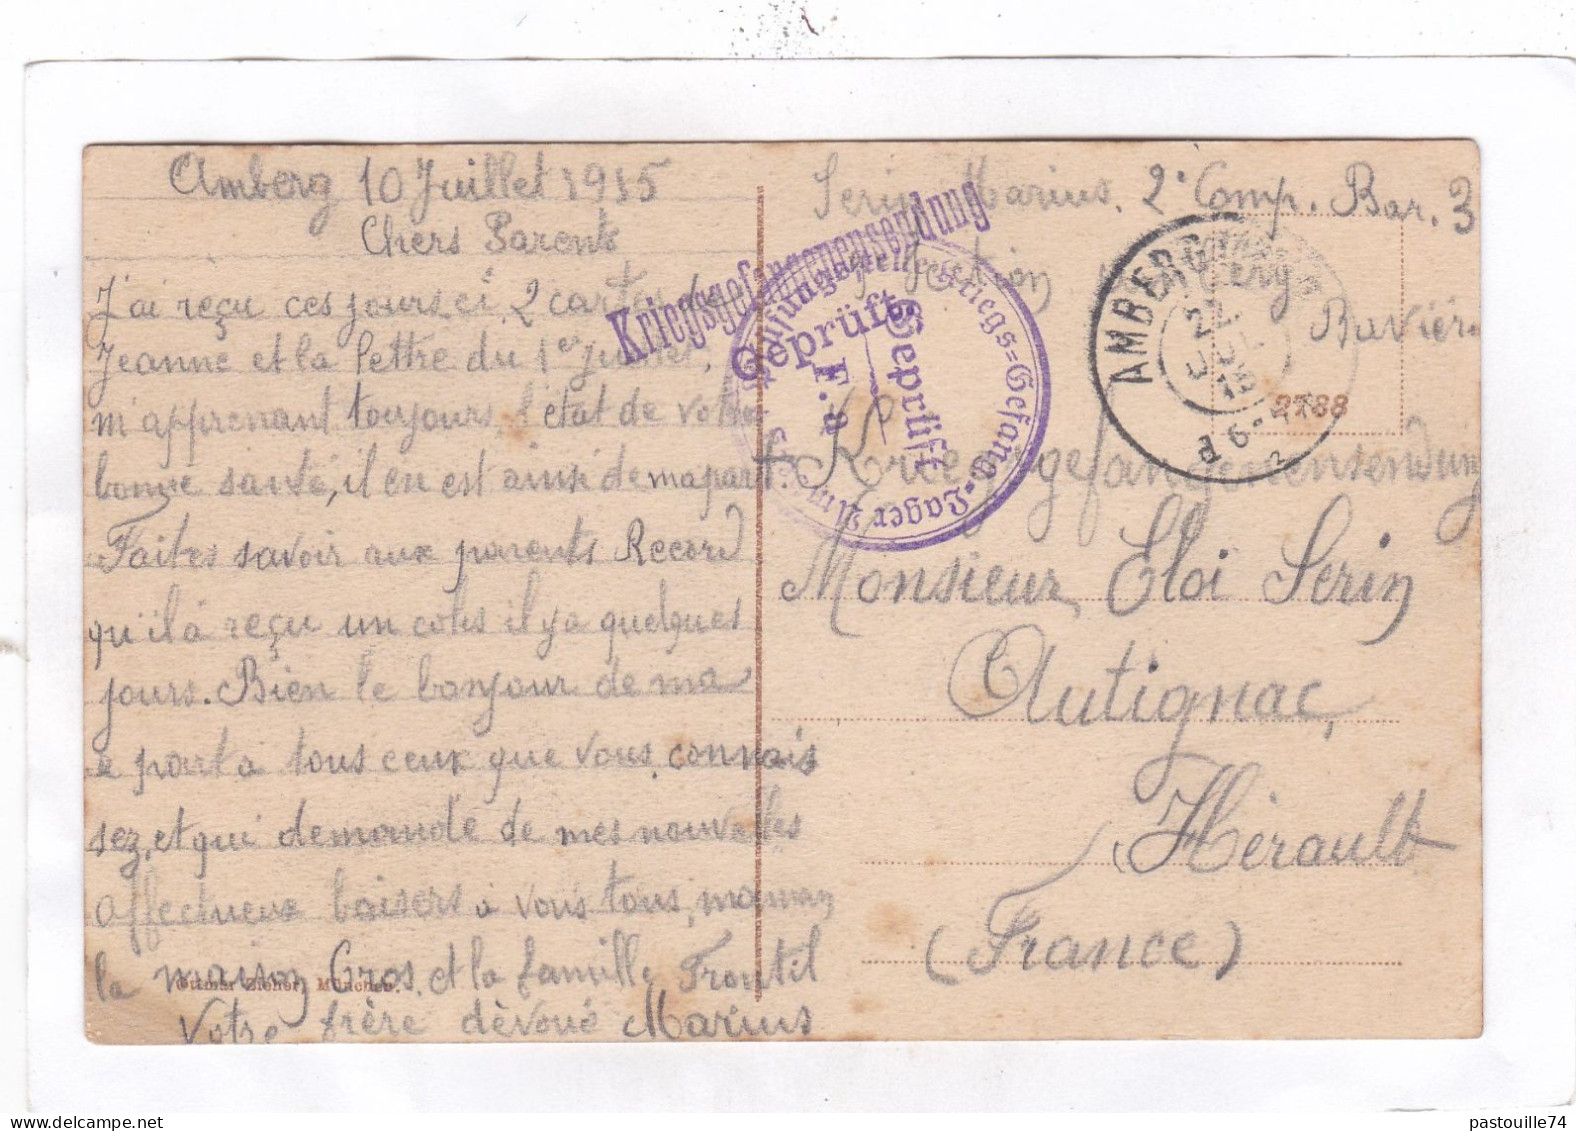 Amberg 10 Juillet 1915
Chers Parents
J'ai reçu ces jours, ci 2 cartes de
Jeanne et la lettre du 1er Juillet,
m'apprenant toujours l'état de votre
bonne santé, il en est ainsi de ma part.
Faites savoir aux parents Record
qu'il à reçu un colis il y a quelques
jours. Bien le bonjour de ma
part a tous ceux que vous connais
sez, et qui demande de mes nouvelles
affectueux baisers a vous tous, maman
la maison Gros, et la famille Frontil
Votre frère dévoué Marius
Ottmar Zieher, München.
Serin Marius, 2e Comp. Bar. 3
Section Amberg
Bavière
Kriegsgefangenensendung
Monsieur Eloi Serin
Autignac,
Hérault
(France)
Kriegsgefangenensendung
Geprüft
F. a
Geprüft
Prüfungsstelle Kriegs=Gefang.=Lager Am
AMBERG
22
JUL
15
6-7
2788
pastouille74